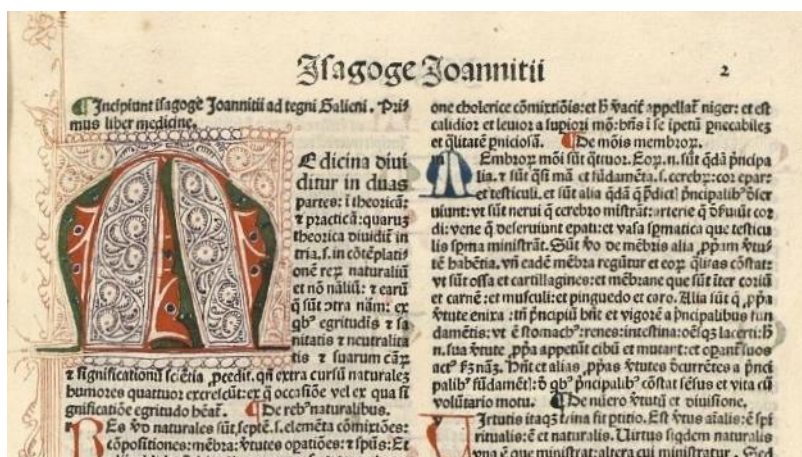 Isagoge Joannitii
2
Incipiunt isagoge Joannitii ad tegni Galieni. Pri⸗
mus liber medicine.
Medicina diui
ditur in duas
partes: i theoricā:
⁊ practicā: quaruꝫ
theorica diuidit̄ in
tria. s. in cōtēplati⸗
onē reꝝ naturaliū
et nō nāliū: ⁊ earū
q̄ sūt ↄtra nām: ex
qbꝰ egritudis ⁊ sa
nitatis ⁊ neutralita
tis ⁊ suarum cāꝝ
⁊ significationū sciētia ꝓcedit. qn̄ extra cursū naturaleꝫ
humores quattuor excrescūt: ex q̄ occasiōe vel ex qua si
gnificatiōe egritudo hēat̄. De rebꝰ naturalibus.
Res v̄o naturales sūt septē. s. elemēta cōmixtiōes:
cōpositiones: mēbra: v̄tutes opatiōes: ⁊ spūs: Et
one cholerice cōmixtiōis: et appellat̄ niger: et est
calidior et leuior a supiori mō: hn̄s i se ipetū
et q̄litatē pniciosā. De mōis membroꝝ.
Membroꝝ mōi sūt q̄ttuor. Eoꝝ. n. sūt q̄dā pncipa
lia. ⁊ sūt q̄si mā et fūdamēta. s. cerebꝝ: cor epar:
et testiculi. et sūt alia q̄dā q̄ pdictꝭ pncipalibꝰ
uiunt: vt sūt nerui q̄ cerebro mīstrāt: arterie q̄ cor
di: vene q̄ deseruiunt epati: et vasa spmatica que testicu
lis spma ministrāt. Sūt v̄o de mēbris alia ꝓpam v̄tu⸗
tē habētia. vn̄ eadē mēbra regūtur et eoꝝ q̄litas cōstat:
vt sūt ossa et cartillagines: et mēbrane que sūt iter coriū
et carnē: et musculi: et pinguedo et caro. Alia sūt q̄ ꝓpa
v̄tute enixa: tn̄ pncipiū hn̄t et vigorē a pncipalibus fun
damētis: vt ē stomachꝰ: renes: intestina: oēsqꝫ lacerti:
n. sua v̄tute ꝓpa appetūt cibū et mutant: et opant̄ suos
actꝰ nāꝫ. Hn̄t et alias ꝓpas v̄tutes a pnci
palibꝰ fūdamētꝭ: qbꝰ pncipalibꝰ cōstat sēsus et vita cū
volūtario motu. De nūero v̄tutū et diuisione.
Virtutis itaqꝫ trina fit ptitio. Est v̄tus aīalis: ē spi
ritualis: ē et naturalis. Uirtus siqdem naturalis
vna ē que ministrat: altera cui ministratur. Sed